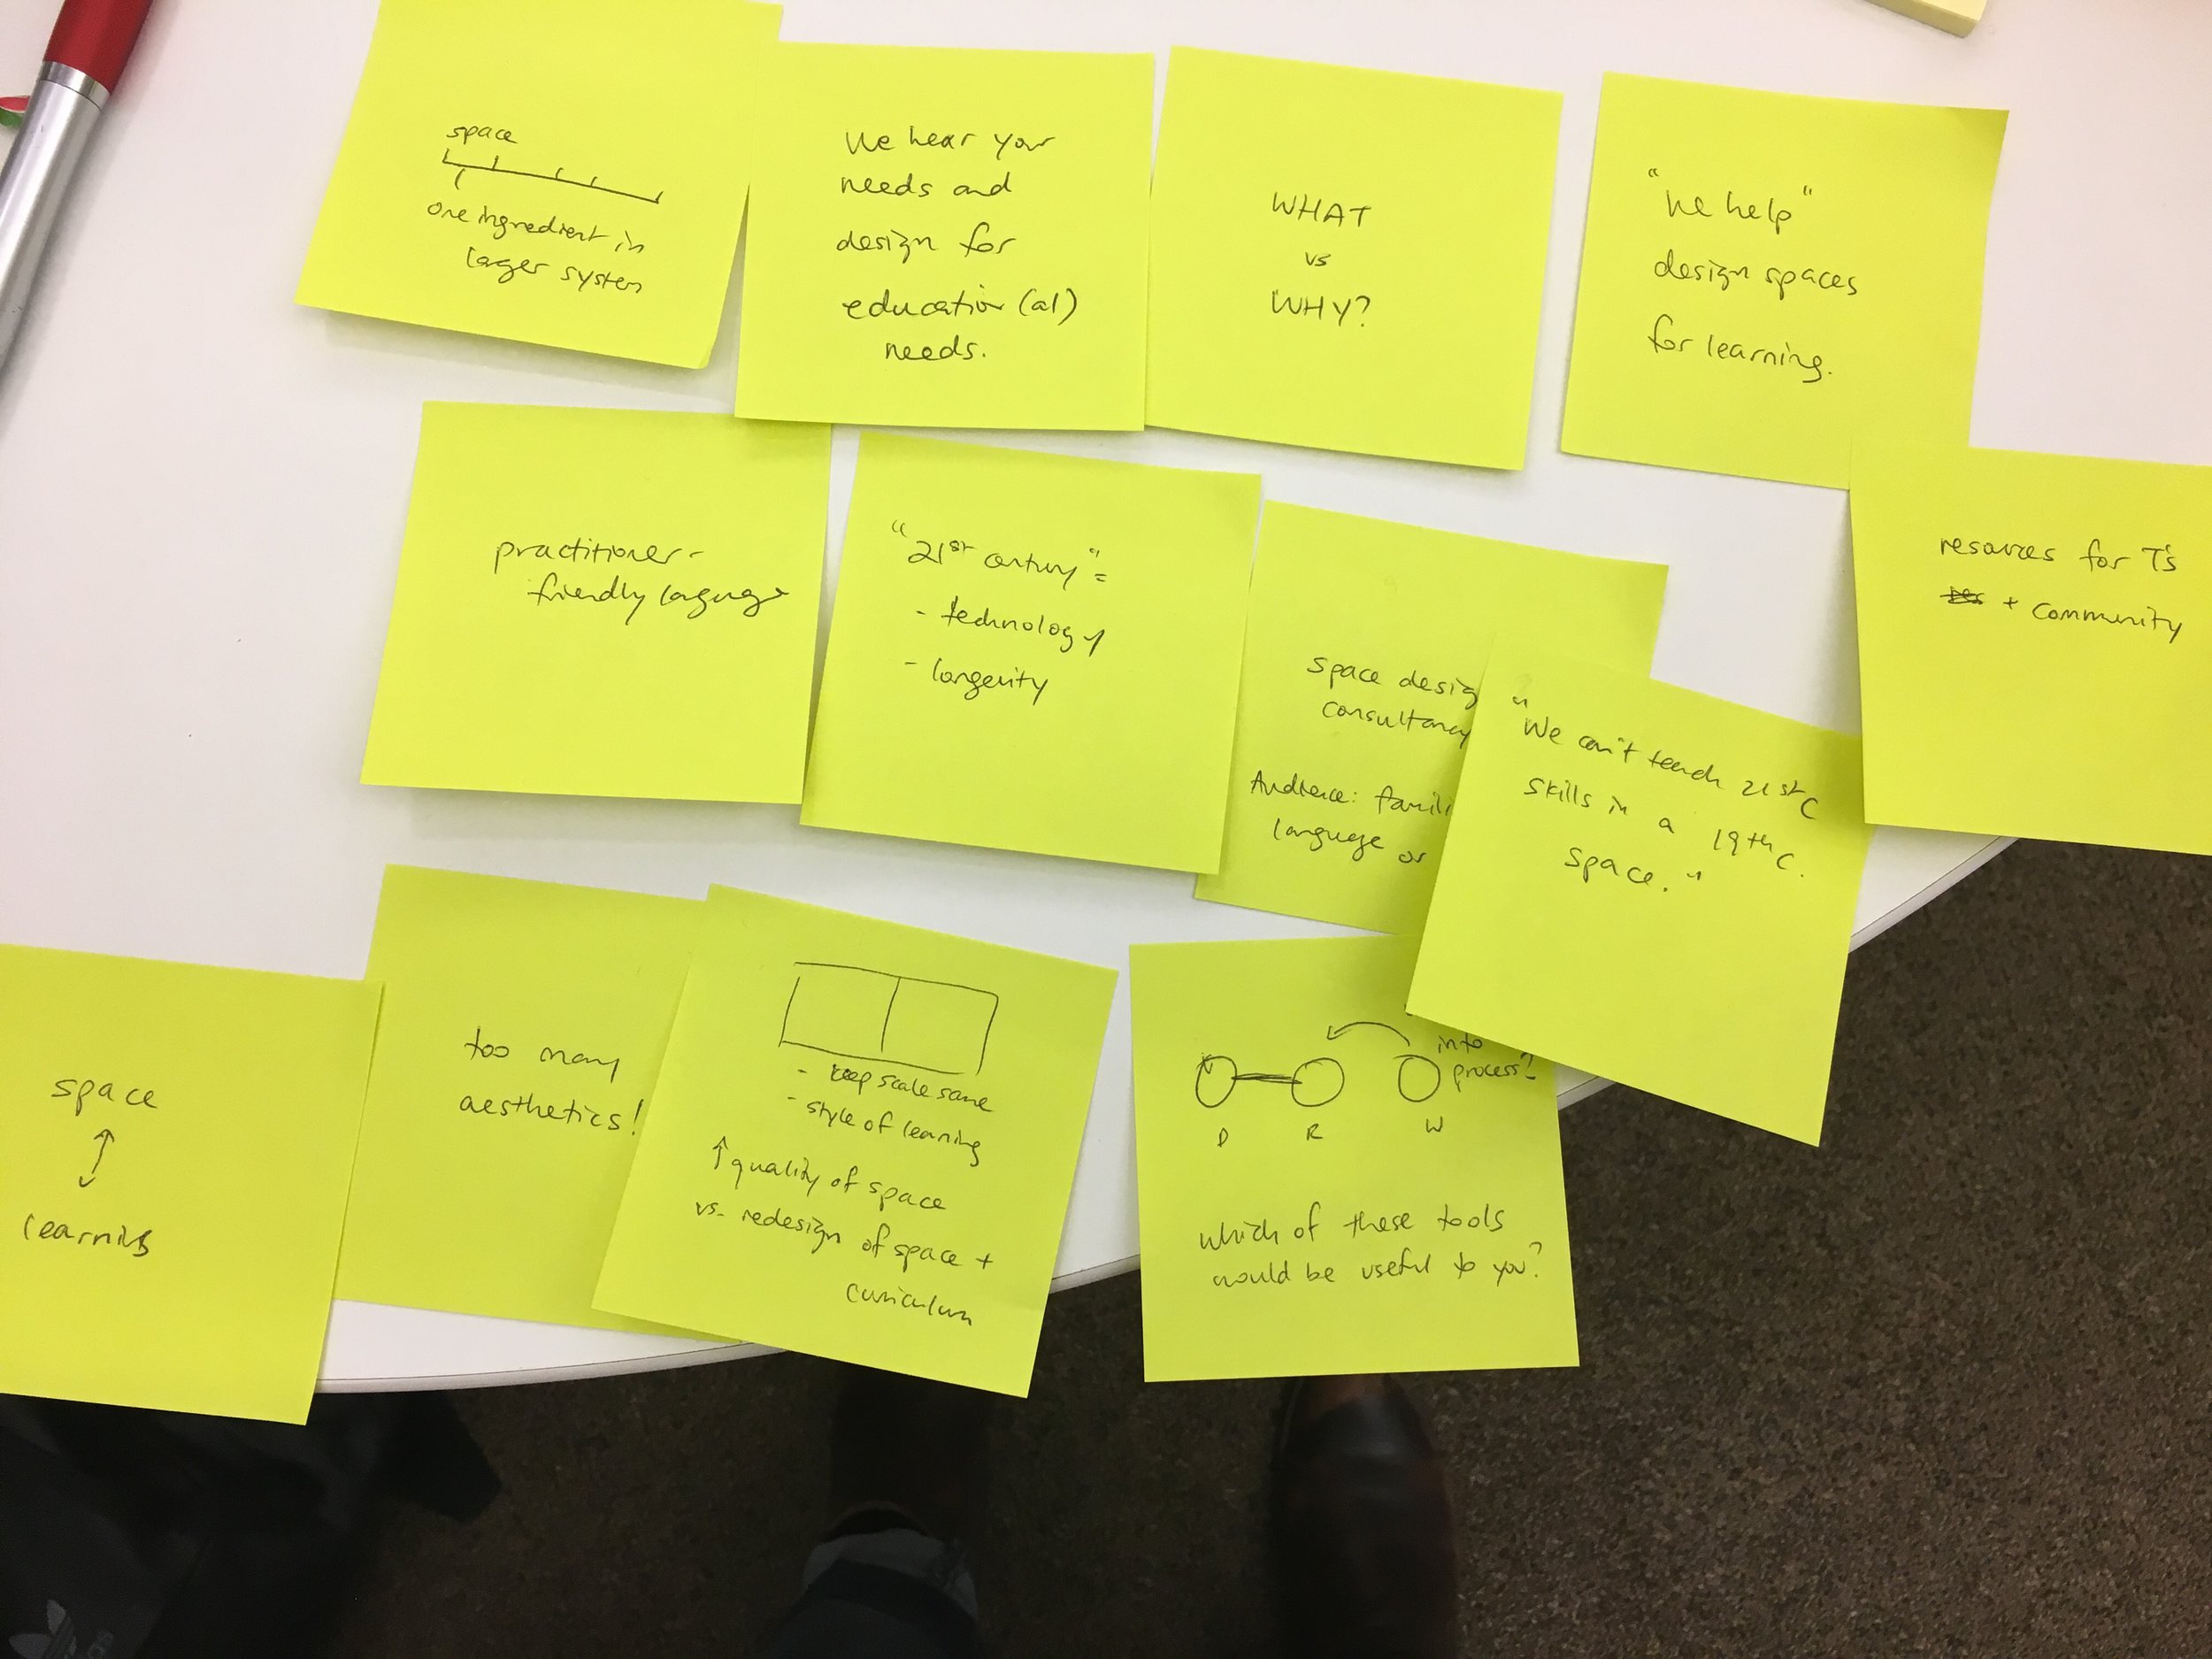 space
one ingredient in
larger system
We hear your
needs and
design for
education(al)
needs.
WHAT
vs
WHY?
"We help"
design spaces
for learning.
practitioner-
friendly language
"21st century" =
- technology
- longevity
space desig
consultancy
Audience: famili
language or
"We can't teach 21st C
skills in a 19th C.
space."
resources for T's
+ community
space
learning
too many
aesthetics!
- keep scale same
- style of learning
↑ quality of space
vs. redesign of space +
curriculum
into
process?
D R W
which of these tools
would be useful to you?